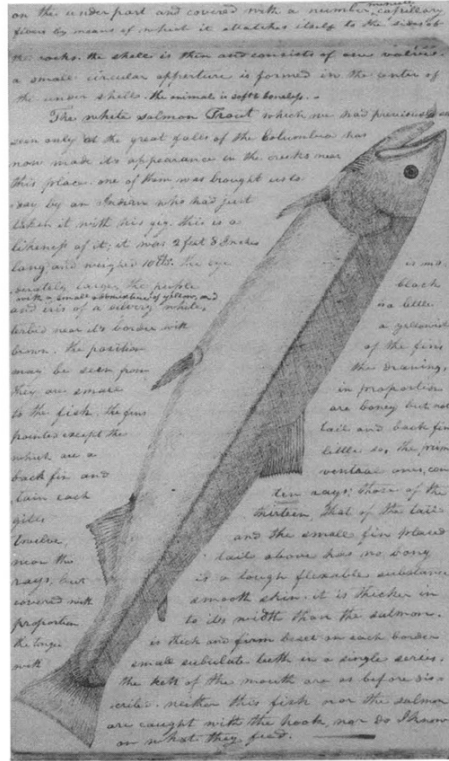 on the under part and covered with a number minute capillary
fibers by means of which it attatches itself to the sides of
the rocks. the shell is thin and consists of one valve.
a small circular apperture is formed in the center of
the under shell. the animal is soft & boneless. -
The white Salmon Trout which we had previously
seen only at the great falls of the Columbia has
now made its appearance in the creeks near
this place. one of them was brought us to
day by an Indian who had just
taken it with his gig. this is a
likeness of it; it was 2 feet 8 Inches
long, and weighed 10 lbs. the eye is mo-
derately large, the puple black
with a small admixture of yellow, and
and iris of a silvery white, is a little
terbid near its border with a yellowish
brown. the position of the fins
may be seen from the drawing,
they are small in proportion
to the fish. the fins are boney but not
pointed except the tail and back fin
which are a little so, the prime
back fin and ventral ones, con
tain each ten rays; those of the
gills thirteen that of the tail
twelve and the small fin placed
near the tail above has no bony
rays, but is a tough flexable substance
covered with smooth skin. it is thicker in
proportion to its width than the salmon.
the tongue is thick and firm beset on each border
with small subulate teeth in a single series.
the teeth of the mouth are as before dis-
cribed. neither this fish nor the salmon
are caught with the hook, nor do I know
on what they feed.